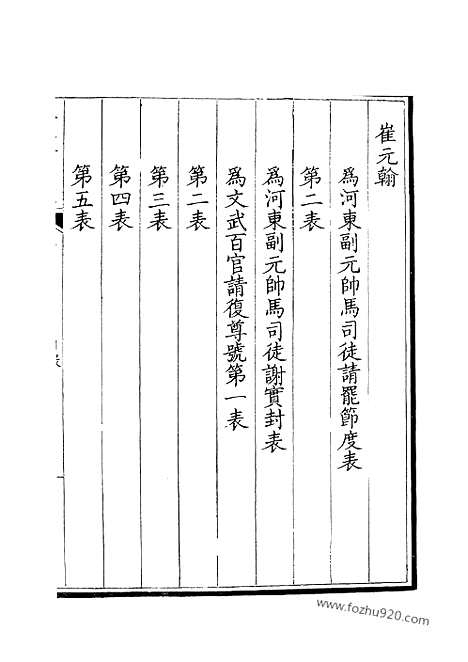 崔元翰
為河東副元帥馬司徒請罷節度表
第二表
為河東副元帥馬司徒謝實封表
為文武百官請復尊號第一表
第二表
第三表
第四表
第五表
www.fozhu920.com